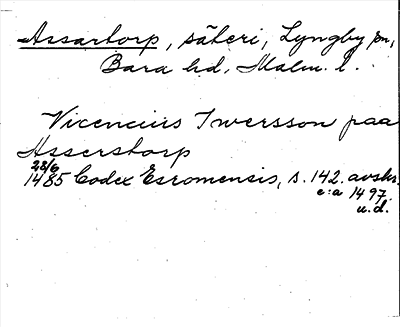 Assartorp, säteri, Lyngby sn,
Bara hd, Malm. l.
Vicencius Iwersson paa
Asserstorp
28/6
1485 Codex Esromensis, s. 142. avskr.
e: a 1497.
u.d.